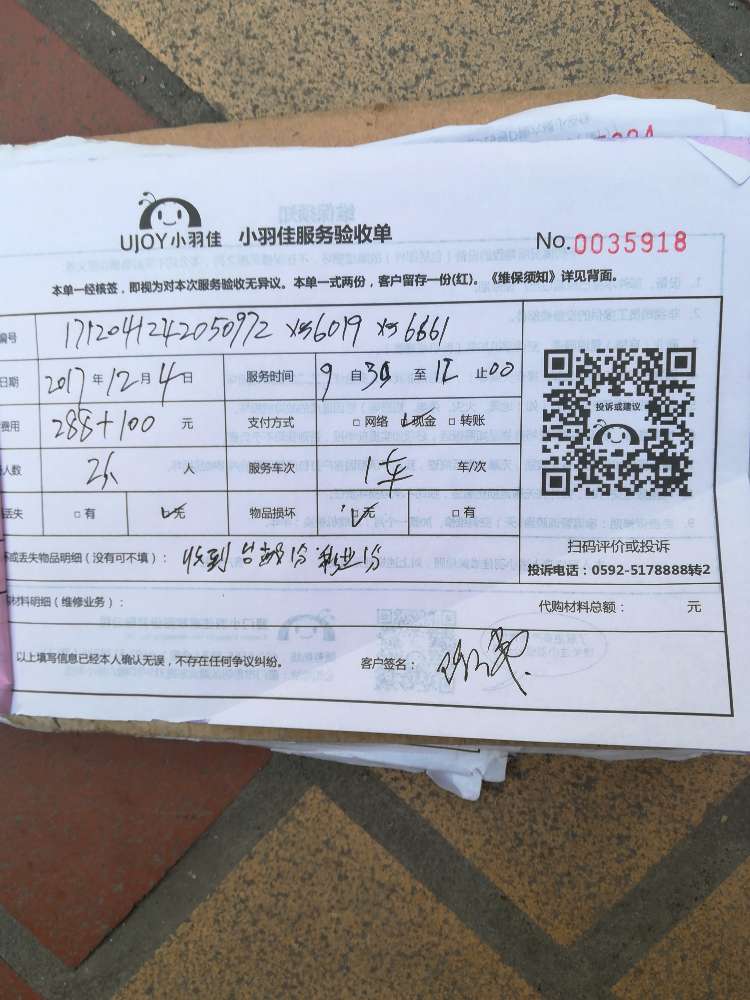 UJOY小羽佳 小羽佳服务验收单 No.0035918
本单一经核签，即视为对本次服务验收无异议。本单一式两份，客户留存一份(红)。《维保须知》详见背面。
编号 1712041242050972 6019 6661
日期 2017年12月4日 服务时间 9自30至12止00
费用 288+100 元 支付方式 □网络 现金 □转账
人数 2 人 服务车次 1车 车/次
丢失 □有 无 物品损坏 无 □有
坏或丢失物品明细（没有可不填）： 收到
材料明细（维修业务）： 代购材料总额： 元
以上填写信息已经本人确认无误，不存在任何争议纠纷。 客户签名：
投诉或建议
扫码评价或投诉
投诉电话：0592-5178888转2